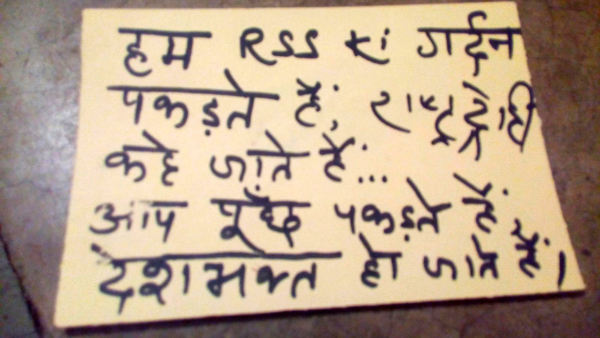 हम RSS की गर्दन
पकड़ते हैं, राष्ट्रद्रोही
कहे जाते हैं...
आप पूँछ पकड़ते हैं
देशभक्त हो जाते हैं।